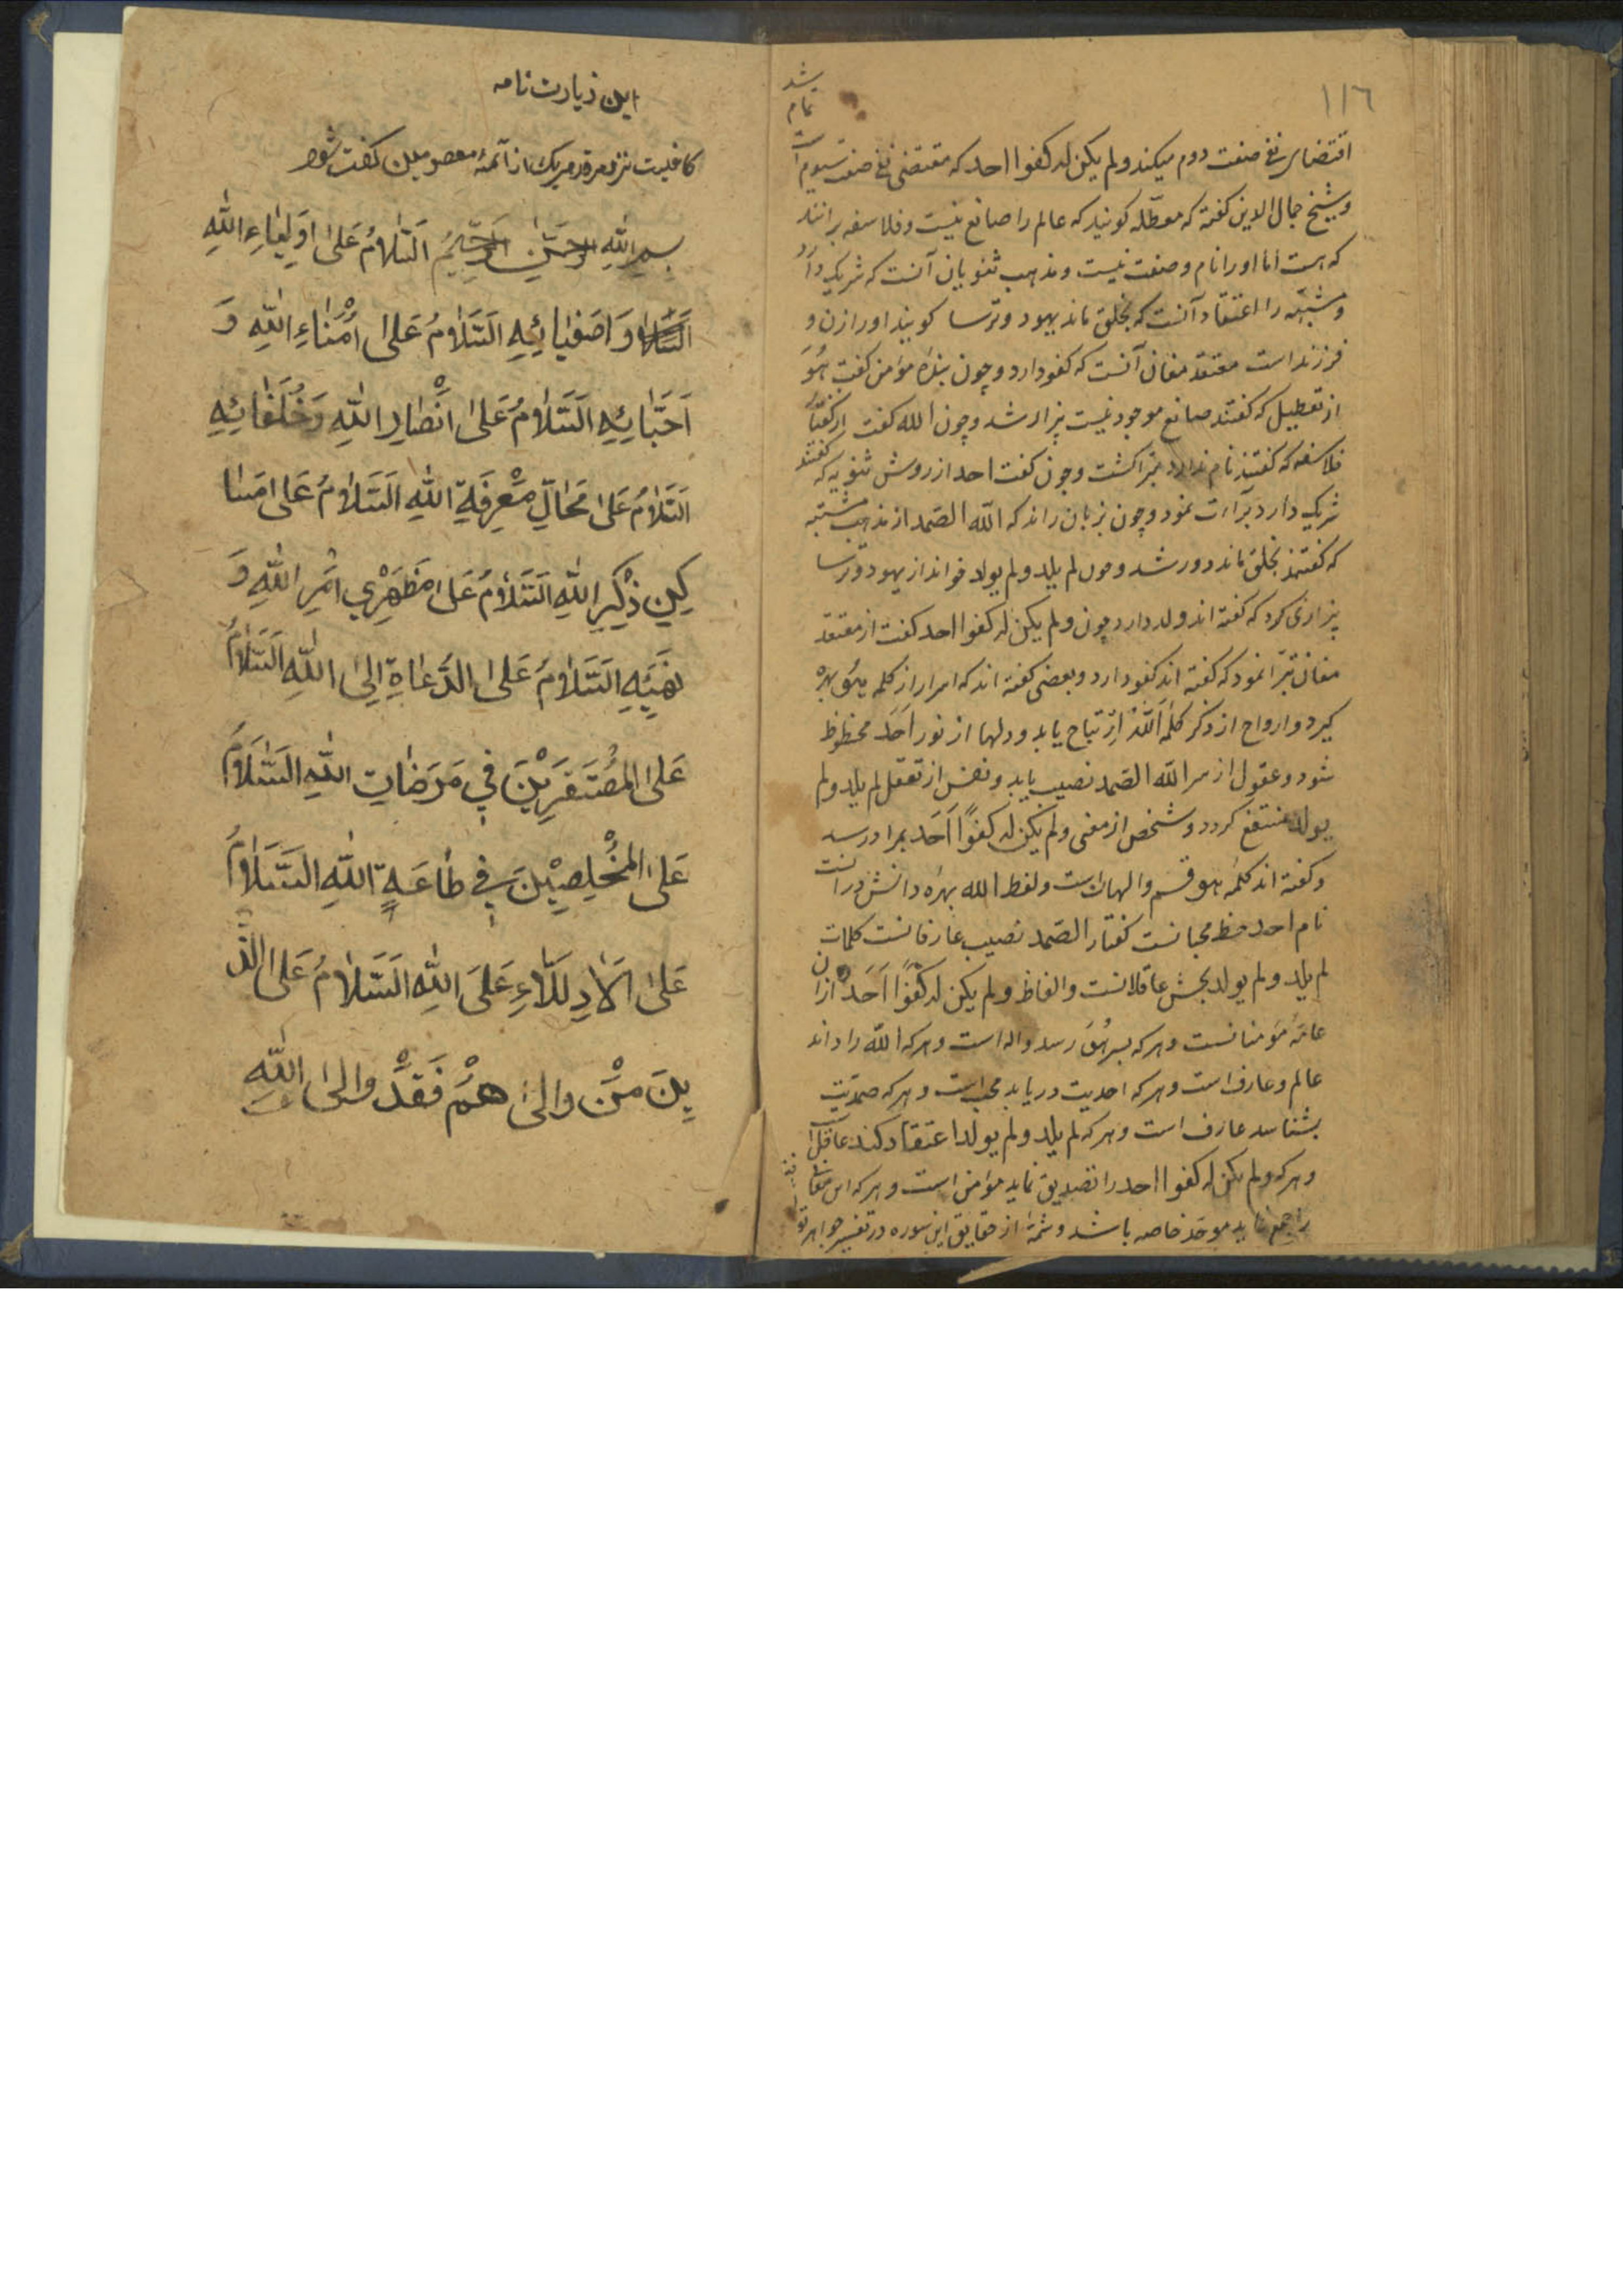 ١١٦
اقتضای نفی صفت دوم میکند ولم یکن له کفوا احد که مقتضی نفی صفت سیوم
و شیخ جمال الدین کفته که معطّله کویند که عالم را صانع نیست و فلاسفه برانند
که هست اما او را نام و صفت نیست و مذهب ثنویان آنست که شریک دارد
و مشبّهه را اعتقاد آنست که بخلق ماند یهود و ترسا کویند او را زن و
فرزند است معتقد مغان آنست که کفو دارد و چون بنده مؤمن کفت هُوَ
از تعطیل که کفتند صانع موجود نیست بیزار شد و چون الله کفت از کفتار
فلاسفه که کفتند نام ندارد مبرا کشت و چون کفت احد از روش ثنویه که کفتند
شریک دارد برآءت نمود و چون بزبان راند که الله الصّمد از مذهب مشبّه
که کفتند بخلق ماند دور شد و چون لم یلد ولم یولد خواند از یهود و ترسا
بیزاری کرد که کفته اند ولد دارد چون ولم یکن له کفوا احد کفت از معتقد
مغان تبّرا نمود که کفته اند کفو دارد و بعضی کفته اند که اسرار از کلمه هُوَ بهره
کیرد و ارواح از ذکر کلمه اَللّهُ اِرْتیاح یابد و دلها از نور اَحَد محظوظ
شود و عقول از سر الله الصّمد نصیب یابد و نفس از تعقل لم یلد ولم
یولد منتفع کردد و شخص از معنی ولم یکن له کفوًا اَحَد بمراد رسد
و کفته اند کلمه هو قسم والهانست ولفظ الله بهرۀ دانشورانست
نام احد حظ محبانست کفتار الصّمد نصیب عارفانست کلمات
لم یلد ولم یولد بخش عاقلانست والفاظ ولم یکن له کفوًا اَحَد ازان
عامّه مؤمنانست و هر که بسر هُوَ رسد واله است و هر که الله را داند
عالم و عارف است و هر که احدیت دریابد محب است و هر که صمدیّت
بشناسد عارف است و هر که لم یلد ولم یولد اعتقاد کند عاقل است
و هر که ولم یکن له کفوا احد را تصدیق نماید مؤمن است و هر که این معانی
را جمع نماید موحد خاصه باشد و شمّۀ از حقایق این سوره در تفسیر جواهر
شد
تمام
این زیارت نامه
کافیست نزد مرقد هریک از آئمۀ معصومین کفت شود
بِسمِ اللّهِ الرحمٰنِ الرَحّیِمُ اَلسَّلامُ عَلیٰ اَوْلِیٰاءِ اللّٰهِ
وَاَصفیٰائِهِ اَلسَّلٰامُ عَلی اُمَنٰاءِ اللّٰهِ وَ
اَحِبّٰائِهِ اَلسَّلٰامُ عَلیٰ اَنْصٰارِ اللّٰهِ وَخُلَفٰائِهِ
اَلسَّلٰامُ عَلیٰ مَحٰالِّ مَعْرِفَةِ اللّٰهِ اَلسَّلٰامُ عَلی مَسٰا
کِنِ ذِکْرِ اللّٰهِ اَلسَّلٰامُ عَلیٰ مُظْهِرْیِ اَمْرِ اللّٰهِ وَ
نَهْیِهِ اَلسَّلٰامُ عَلیٰ الدُّعٰاةِ اِلیَ اللّٰهِ اَلسَّلٰامُ
عَلیٰ المُسْتَقرّیْنَ فی مَرَضٰاتِ اللّٰهِ اَلسَّلٰامُ
عَلیٰ المُخْلِصِیْنَ فی طٰاعَةِ اللّٰهِ اَلسَّلٰامُ
عَلیٰ الاَدِلّٰاءِ عَلیَ اللّٰهِ اَلسَّلٰامُ عَلی الَّذ
ینَ مَنْ والیٰ هُمْ فَقَدْ والیَ اللّٰهَ